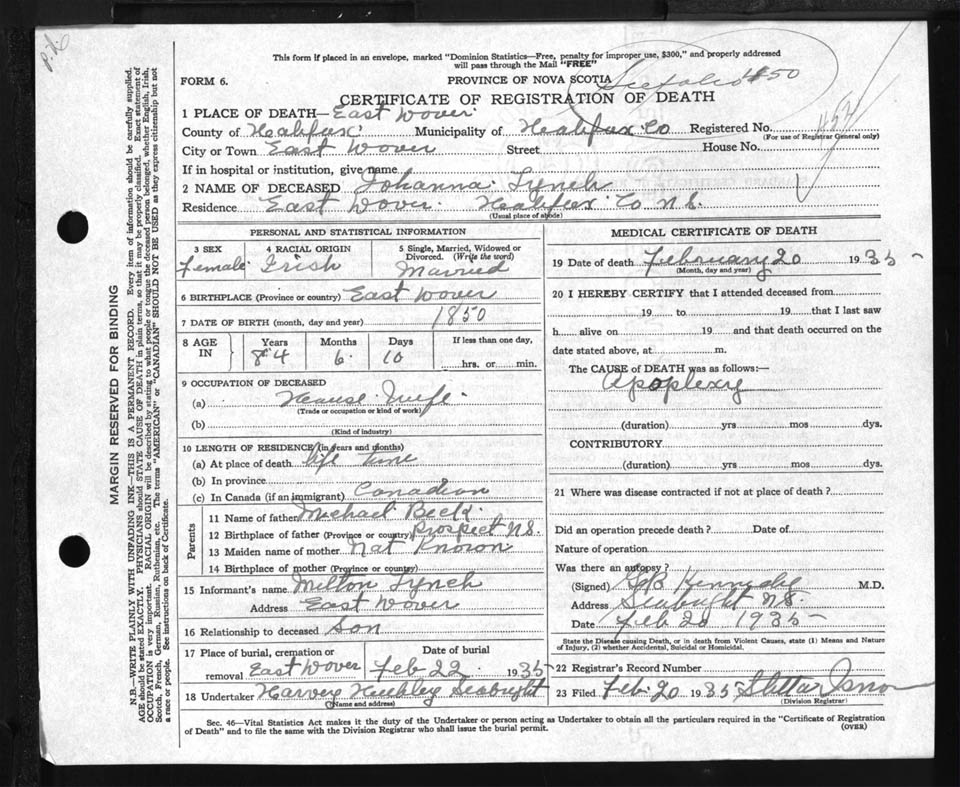 P.V.
This form if placed in an envelope, marked "Dominion Statistics—Free, penalty for improper use, $300," and properly addressed
will pass through the Mail "FREE"
FORM 6.
PROVINCE OF NOVA SCOTIA
1850
CERTIFICATE OF REGISTRATION OF DEATH
1 PLACE OF DEATH—East Dover
County of Halifax Municipality of Halifax Co Registered No.
(For use of Registrar General only)
City or Town East Dover Street House No.
If in hospital or institution, give name
2 NAME OF DECEASED Johanna Lynch
Residence East Dover Halifax Co N.S.
(Usual place of abode)
PERSONAL AND STATISTICAL INFORMATION
3 SEX 4 RACIAL ORIGIN 5 Single, Married, Widowed or
Divorced. (Write the word)
Female Irish Married
6 BIRTHPLACE (Province or country) East Dover
7 DATE OF BIRTH (month, day and year) 1850
8 AGE IN Years Months Days If less than one day,
84 6 10 hrs. or min.
9 OCCUPATION OF DECEASED
(a) House Wife
(Trade or occupation or kind of work)
(b)
(Kind of industry)
10 LENGTH OF RESIDENCE (in years and months)
(a) At place of death life time
(b) In province
(c) In Canada (if an immigrant) Canadian
Parents
11 Name of father Michael Beck
12 Birthplace of father (Province or country) Prospect N.S.
13 Maiden name of mother Not Known
14 Birthplace of mother (Province or country)
15 Informant's name Milton Lynch
Address East Dover
16 Relationship to deceased Son
17 Place of burial, cremation or Date of burial
removal East Dover Feb 22 1935
18 Undertaker Harvey Hubley Seabright
(Name and address)
MEDICAL CERTIFICATE OF DEATH
19 Date of death February 20 1935
(Month, day and year)
20 I HEREBY CERTIFY that I attended deceased from
19 to 19 that I last saw
h alive on 19 and that death occurred on the
date stated above, at m.
The CAUSE of DEATH was as follows:—
Apoplexy
(duration) yrs mos dys.
CONTRIBUTORY
(duration) yrs mos dys.
21 Where was disease contracted if not at place of death?
Did an operation precede death? Date of
Nature of operation
Was there an autopsy?
(Signed) M.D.
Address Seabright N.S.
Date Feb 20 1935
State the Disease causing Death, or in death from Violent Causes, state (1) Means and Nature
of Injury, (2) whether Accidental, Suicidal or Homicidal.
22 Registrar's Record Number
23 Filed Feb. 20 1935
(Division Registrar)
Sec. 46—Vital Statistics Act makes it the duty of the Undertaker or person acting as Undertaker to obtain all the particulars required in the "Certificate of Registration
of Death" and to file the same with the Division Registrar who shall issue the burial permit. (OVER)
MARGIN RESERVED FOR BINDING
N.B.—WRITE PLAINLY WITH UNFADING INK—THIS IS A PERMANENT RECORD. Every item of information should be carefully supplied.
AGE should be stated EXACTLY. PHYSICIANS should STATE CAUSE OF DEATH in plain terms, so that it may be properly classified. Exact statement of
OCCUPATION is very important. RACIAL ORIGIN will be described by stating to what people or tongue the deceased person belonged, whether English, Irish,
Scotch, French, German, Russian, Ruthenian, etc. The terms "AMERICAN" or "CANADIAN" SHOULD NOT BE USED as they express citizenship but not
a race or people. See instructions on back of Certificate.